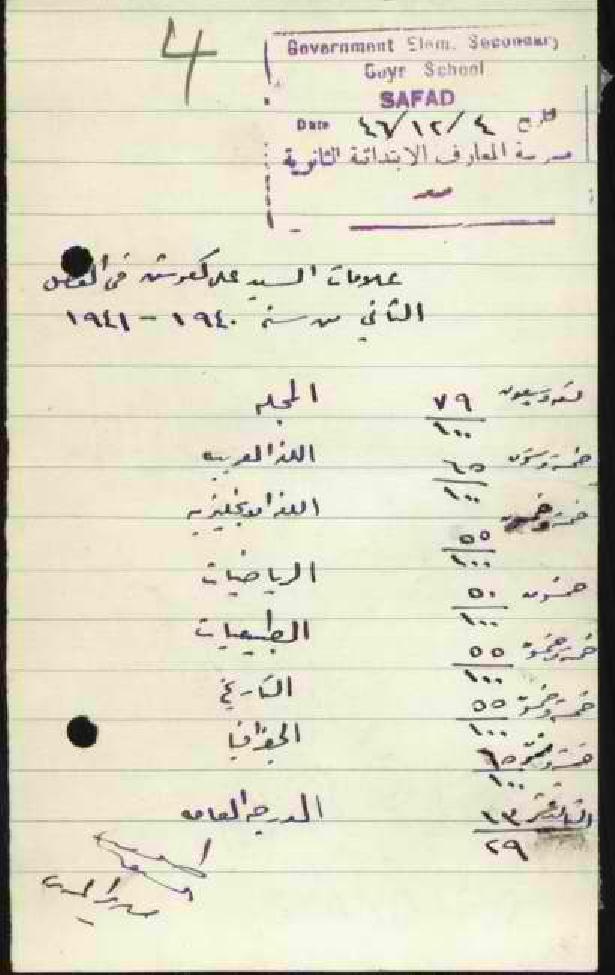 4
Government Elem. Secondary
Boys' School
SAFAD
Date ٤٦/١٢/٤ تاريخ
مدرسة المعارف الابتدائية الثانوية
صفد
علامات السيد علي في الفصل
الثاني من سنة ١٩٤٠ - ١٩٤١
المجلة ٧٩/١٠٠ تسعة وسبعون
اللغة العربية ٦٥/١٠٠ خمسة وستون
اللغة الانجليزية ٥٥/١٠٠ خمسة وخمسون
الرياضيات ٥٠/١٠٠ خمسون
الطبيعيات ٥٥/١٠٠ خمسة وخمسون
التاريخ ٥٥/١٠٠ خمسة وخمسون
الجغرافيا ٦٥/١٠٠ خمسة وستون
الدرجة العامة ١٣/٢٩ الثالثة عشرة
مدير المدرسة